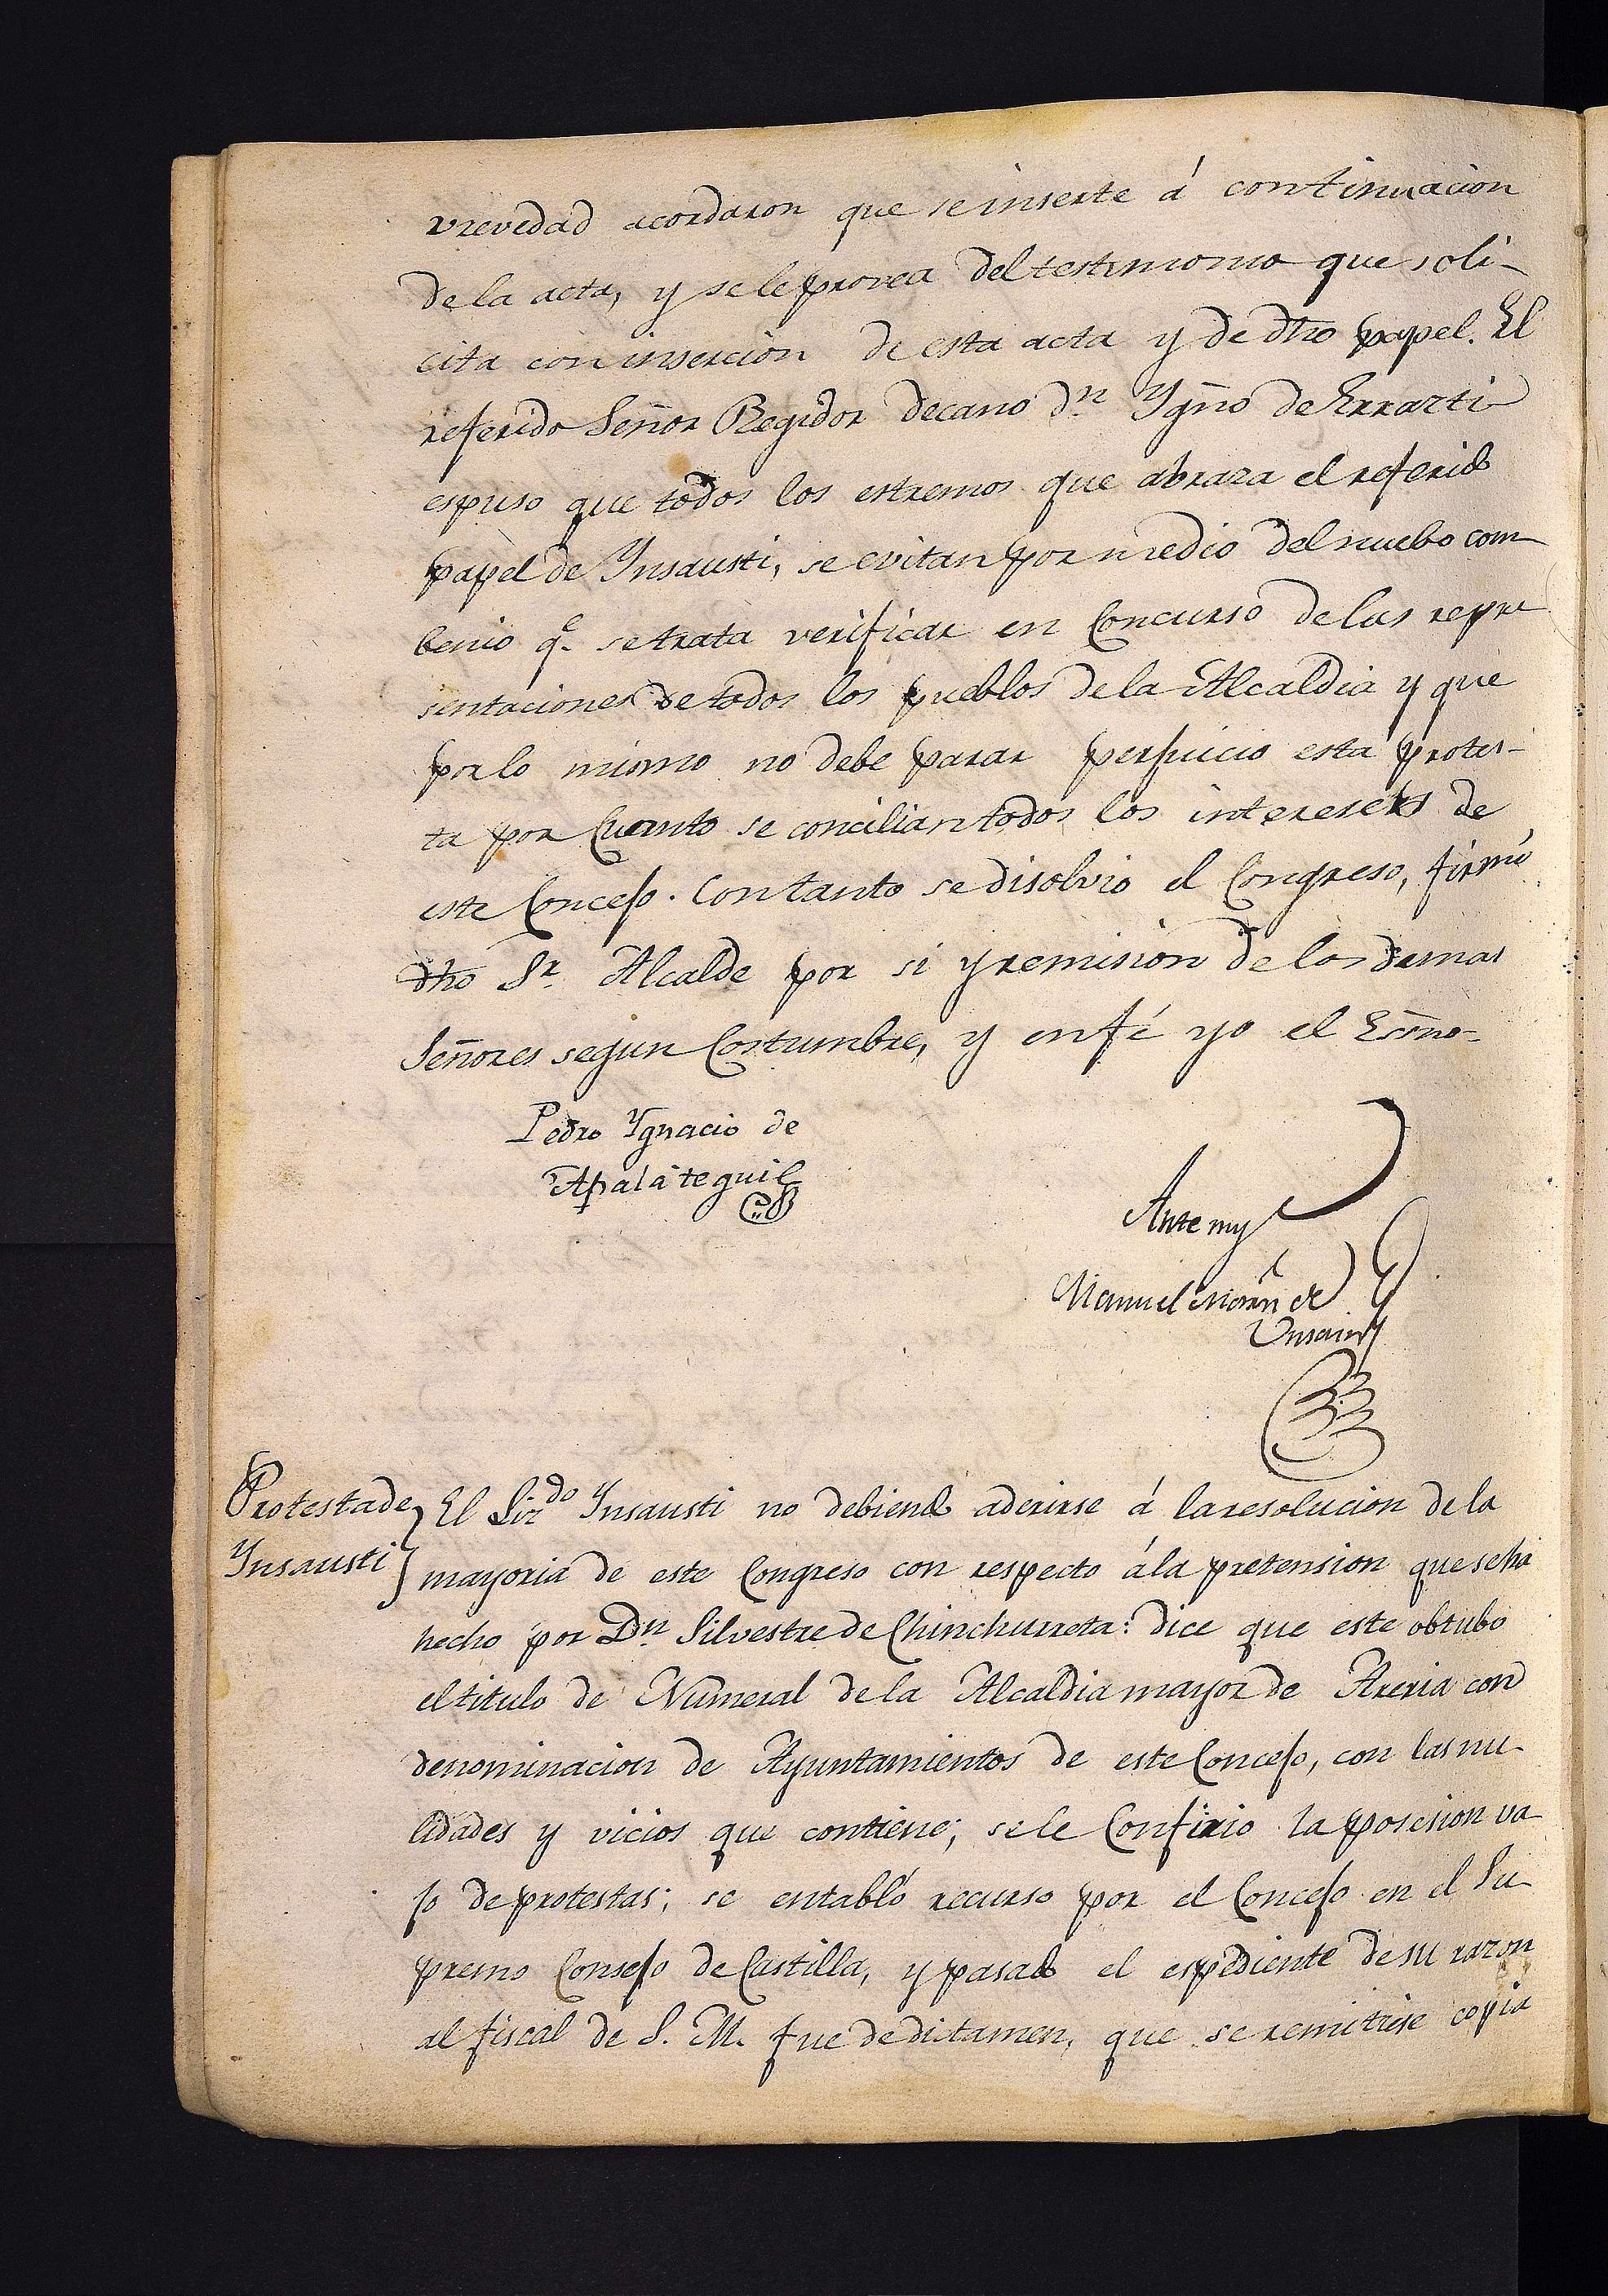 vrevedad acordaron que se inserte á continuacion
de la acta, y se le provea del testimonio que soli-
cita con insercion de esta acta y de dho papel. El
referido Señor Regidor decano dn. Ygño de Errazti
espuso que todos los estremos que abraza el referido
papel de Ynsausti, se evitan por medio del nuebo com-
benio qe. se trata verificar en Concurso de las repre
sentaciones de todos los pueblos de la Alcaldia y que
por lo mismo no debe parar perjuicio esta protes-
ta por Cuanto se concilian todos los intereses de
este Concejo. Con tanto se disolvio el Congreso, firmó
dho Sr. Alcalde por si y remision de los demas
Señores segun Costumbre, y en fé yo el Esño-
Pedro Ygnacio de
Apalategui
Ante my
Manuel de
Protesta de
Ynsausti
El Lizdo Ynsausti no debiendo aderirse á la resolucion de la
mayoria de este Congreso con respecto á la pretension que se ha
hecho por Dn. Silvestre de Chinchurreta: dice que este obtubo
el titulo de Numeral de la Alcaldia mayor de Areria con
denominacion de Ayuntamientos de este Concejo, con las nu-
lidades y vicios que contiene; se le Confirio la posesion va-
jo de protestas; se entabló recurso por el Concejo en el Su-
premo Consejo de Castilla, y pasado el espediente de su razon
al fiscal de S. M. fue de ditamen, que se remitiese copia